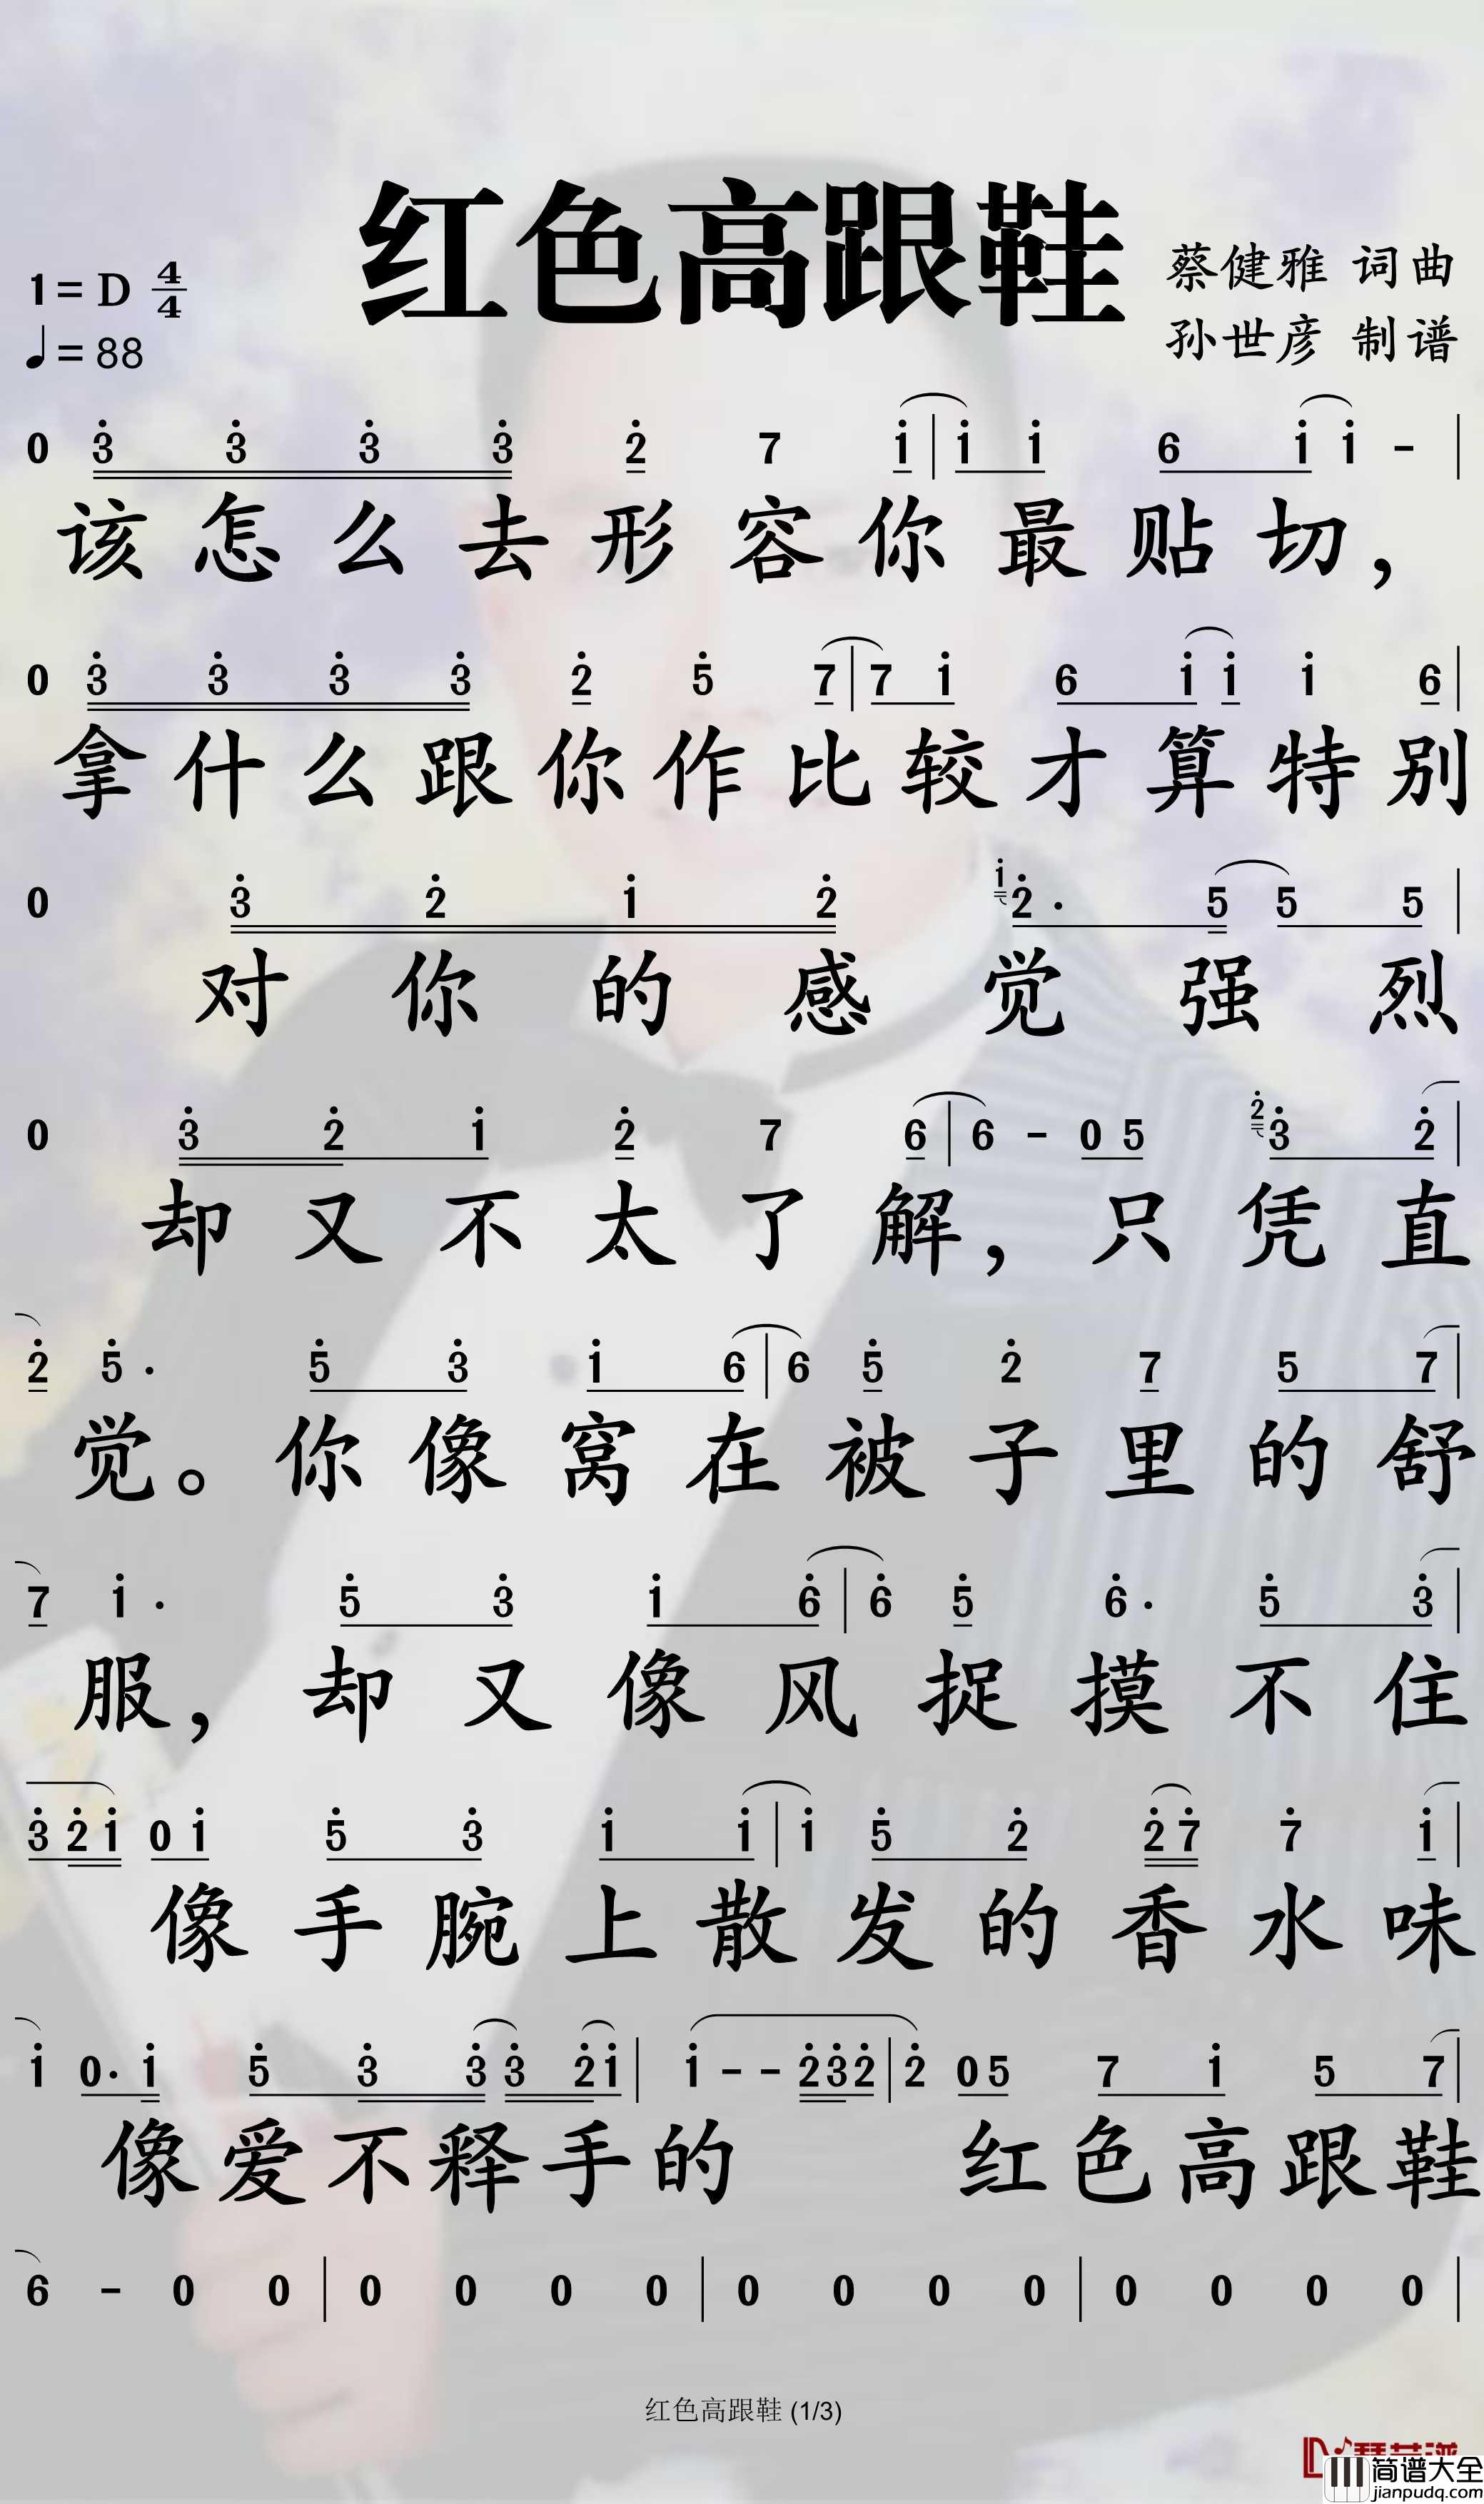 红色高跟鞋
1=D 4/4
♩=88
蔡健雅 词曲
孙世彦 制谱
0 3̇ 3̇ 3̇ 3̇ 2̇ 7 1̇ | 1̇ 1̇ 6 1̇ 1̇ - |
该怎么去形容你最贴切，
0 3̇ 3̇ 3̇ 3̇ 2̇ 5̇ 7 | 7 1̇ 6 1̇ 1̇ 1̇ 6 |
拿什么跟你作比较才算特别
0 3̇ 2̇ 1̇ 2̇ 1̇ 2̇ · 5 5 5 |
对你的感觉强烈
0 3̇ 2̇ 1̇ 2̇ 7 6 | 6 - 0 5 2̇ 3̇ 2̇ |
却又不太了解，只凭直
2̇ 5̇ · 5̇ 3̇ 1̇ 6 | 6 5̇ 2̇ 7 5 7 |
觉。你像窝在被子里的舒
7 1̇ · 5̇ 3̇ 1̇ 6̇ | 6̇ 5̇ 6̇ · 5̇ 3̇ |
服，却又像风捉摸不住
3̇ 2̇ 1̇ 0 1̇ 5̇ 3̇ 1̇ 1̇ | 1̇ 5̇ 2̇ 2̇ 7̇ 7̇ 1̇ |
像手腕上散发的香水味
1̇ 0 · 1̇ 5̇ 3̇ 3̇ 3̇ 2̇ 1̇ | 1̇ - - 2̇ 3̇ 2̇ | 2̇ 0 5 7 1̇ 5 7 |
像爱不释手的 红色高跟鞋
6 - 0 0 | 0 0 0 0 | 0 0 0 0 | 0 0 0 0 |
红色高跟鞋 (1/3)
简谱大全
jianpudq.com